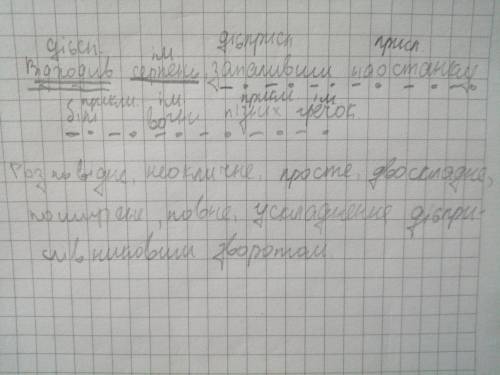 дієсл. ім дієприсл присл.
Відходив серпень, запаливши наостанку
прикм. ім прикм ім
білі вогні пізніх гречок.
Розповідне, неокличне, просте, двоскладне,
поширене, повне, ускладнене дієпри-
слівниковим зворотом.